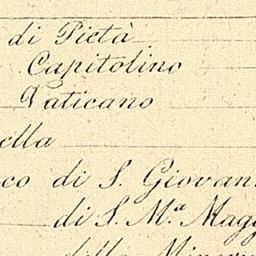 di Pietà
Capitolino
Vaticano
ella
co di S. Giovan
di S. M.ª Magg
della Minerv